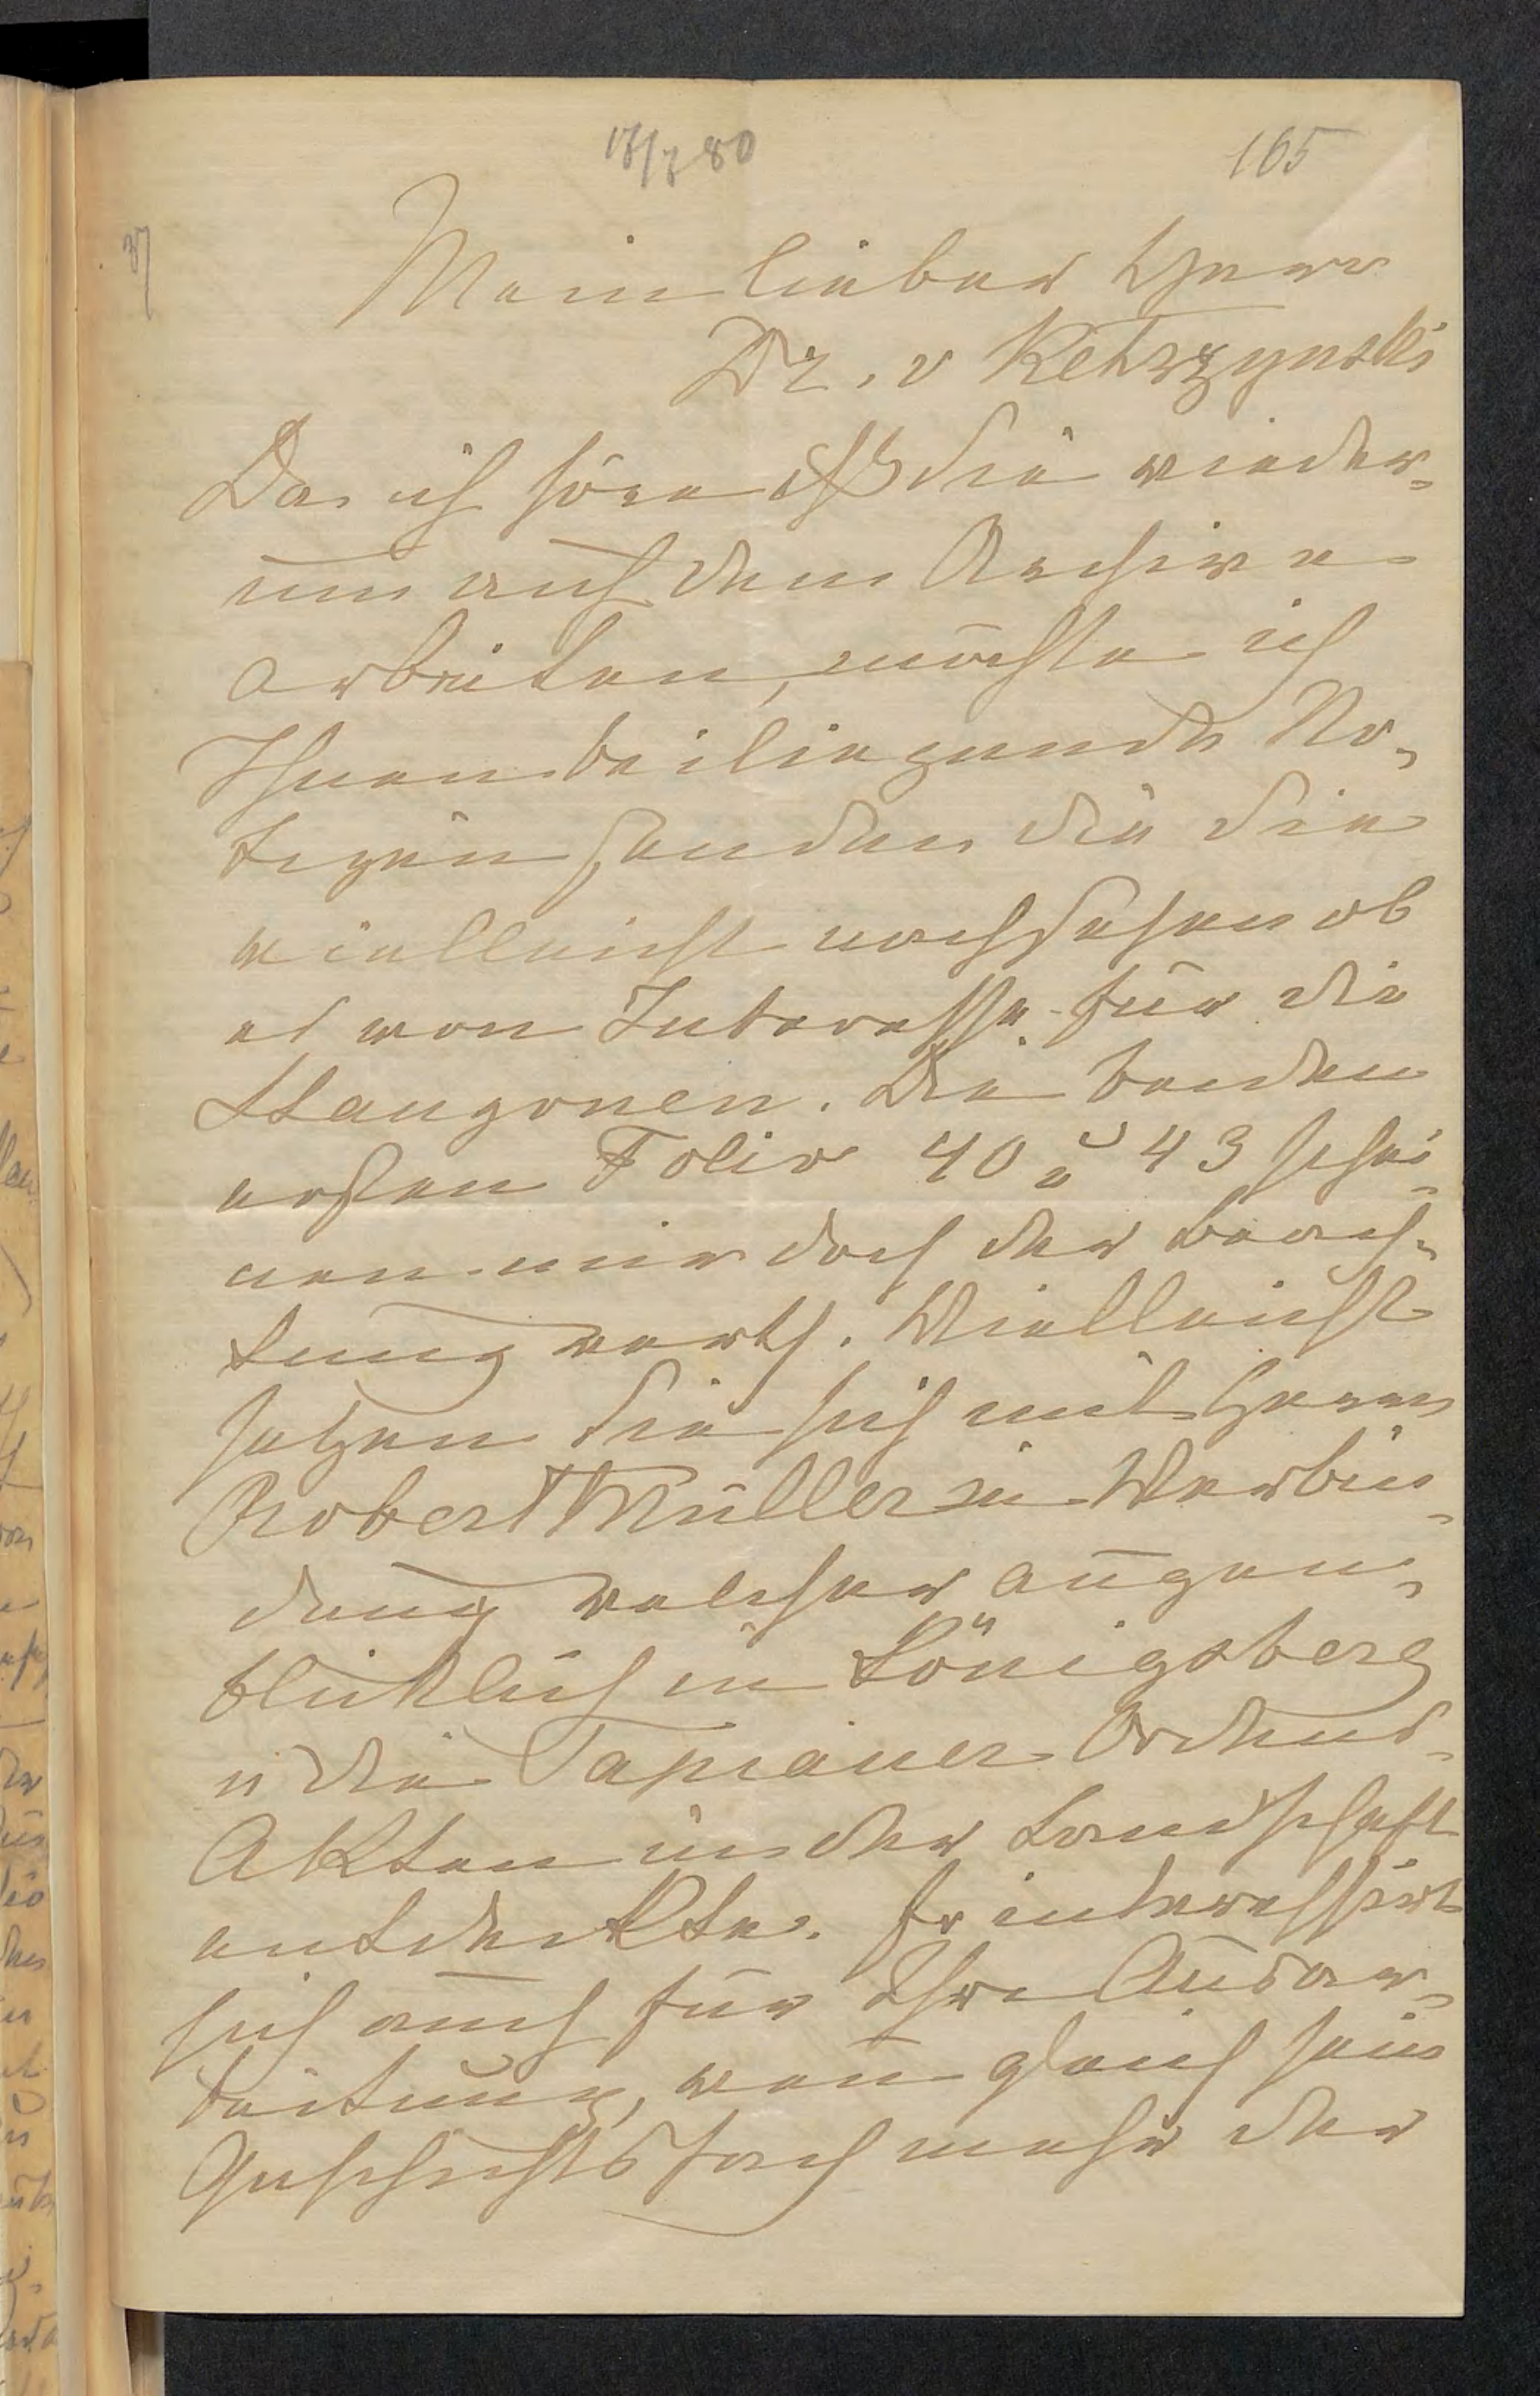 17/7 80
165
37
Mein lieber Herr
Dr. v Kętrzyński
Da ich höre dß Sie wieder-
um auf dem Archive
arbeiten, möchte ich
Ihnen beiliegende No-
tizen senden die Sie
vielleicht nachsehen ob
es von Interesse für die
Stangonen. Die beiden
ersten Folio 40 u 43 schei-
nen mir doch der Beach-
tung werth. Vielleicht
setzen Sie sich mit Herrn
Robert Müller in Verbin-
dung welcher augen-
bliklich in Königsberg
u die Tapiauer Ordens-
Akten in der Landschaft
entdekte. Er interessirt
sich auch für Ihre Ausar-
beitung, wenn gleich sein
Geschichtsfach mehr der